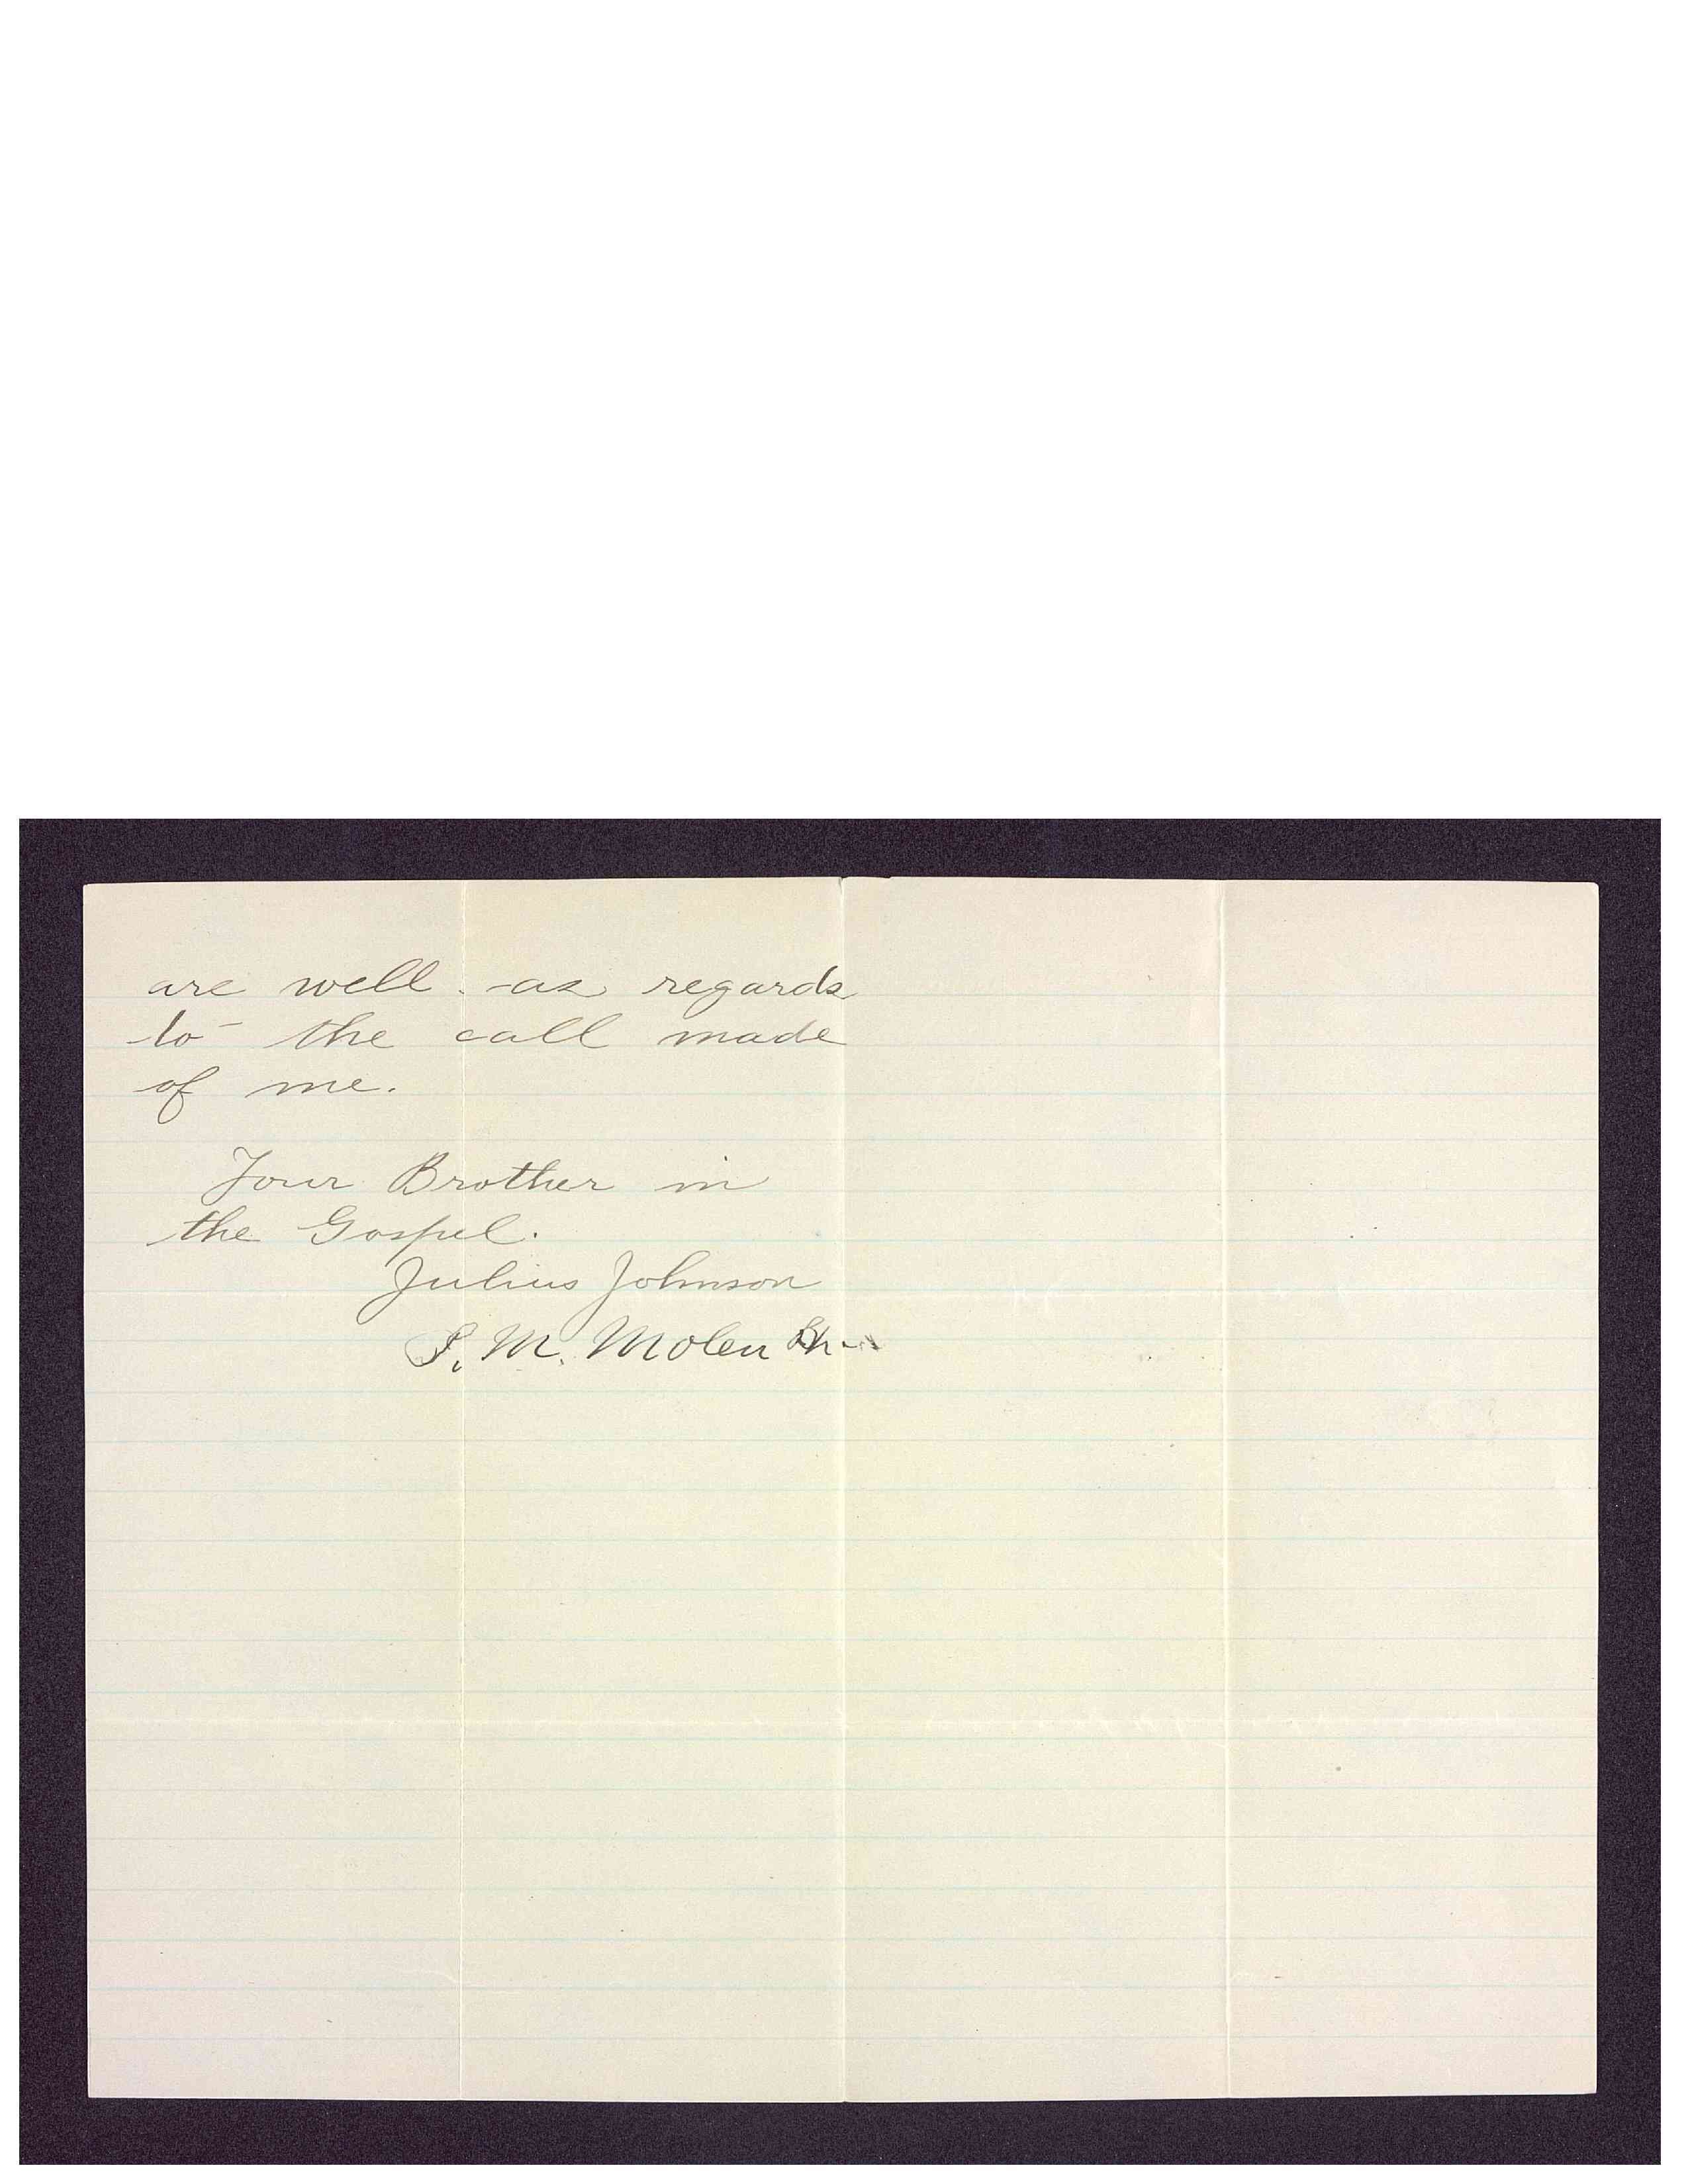 are well. as regards
to the call made
of me.
Your Brother in
the Gospel.
Julius Johnson
S. M. Molen